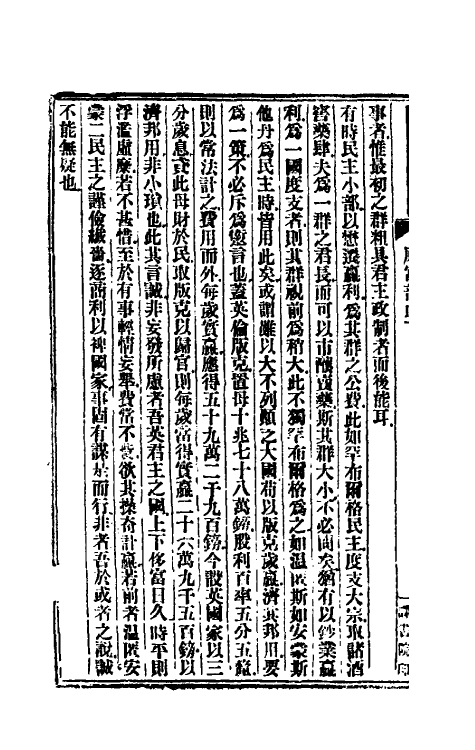 事者惟最初之群粗具君主政制者而後能耳
有時民主小部以懋遷贏利為其群之公費此如罕布爾格民主度支大宗取諸酒
窖藥肆夫為一群之君長而可以市醲賣藥斯其群大小不必問矣猶有以鈔業贏
利為一國度支者則其群視前為稍大此不獨罕布爾格為之如溫匿斯如安蒙斯
他丹為民主時皆用此矣或謂雖以大不列顛之大國苟以版克歲贏濟其邦用要
為一策不必斥為言也蓋英倫版克置母十兆七十八萬鎊股利百率五分五釐
則以常法計之費用而外每歲實贏應得五十九萬二千九百鎊今設英國家以三
分歲息貣此母財於民取版克以歸官則每歲當得實贏二十六萬九千五百鎊以
濟邦用非小瑣也此其言誠非妄發所慮者吾英君主之國上下侈富日久時平則
浮濫虛糜若不甚惜至於有事輕情妄舉費常不愛欲其操奇計贏若前者溫匿安
蒙二民主之謹儉纖嗇逐利以裨國家事固有謀是而行非者吾於或者之說誠
不能無疑也